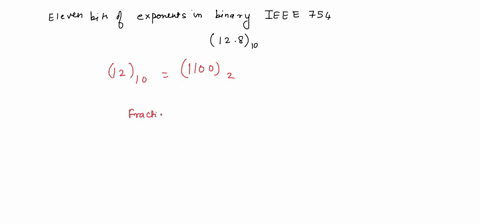 Eleven bits of exponents in binary IEEE 754
(12.8)10
(12)10 = (1100)2
Fracti.